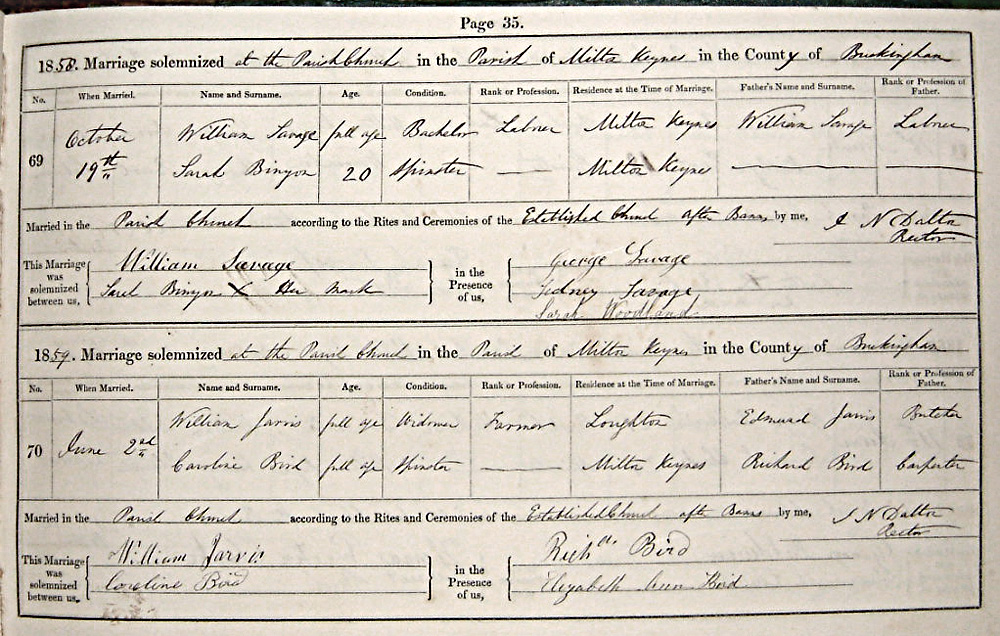 Page 35.
1858. Marriage solemnized at the Parish Church in the Parish of Milton Keynes in the County of Buckingham
No. When Married. Name and Surname. Age. Condition. Rank or Profession. Residence at the Time of Marriage. Father's Name and Surname. Rank or Profession of Father.
69 October 19th William Savage full age Bachelor Labourer Milton Keynes William Savage Labourer
Sarah Binyon 20 Spinster — Milton Keynes — —
Married in the Parish Church according to the Rites and Ceremonies of the Established Church after Banns by me, J N Dalton Rector
This Marriage was solemnized between us, William Savage in the Presence of us, George Savage
Sarah Binyon X Her Mark Sidney Savage
Sarah Woodland
1859. Marriage solemnized at the Parish Church in the Parish of Milton Keynes in the County of Buckingham
No. When Married. Name and Surname. Age. Condition. Rank or Profession. Residence at the Time of Marriage. Father's Name and Surname. Rank or Profession of Father.
70 June 2nd William Jarvis full age Widower Farmer Loughton Edmund Jarvis Butcher
Caroline Bird full age Spinster — Milton Keynes Richard Bird Carpenter
Married in the Parish Church according to the Rites and Ceremonies of the Established Church after Banns by me, J N Dalton Rector
This Marriage was solemnized between us, William Jarvis in the Presence of us, Richd. Bird
Caroline Bird Elizabeth Ann Bird